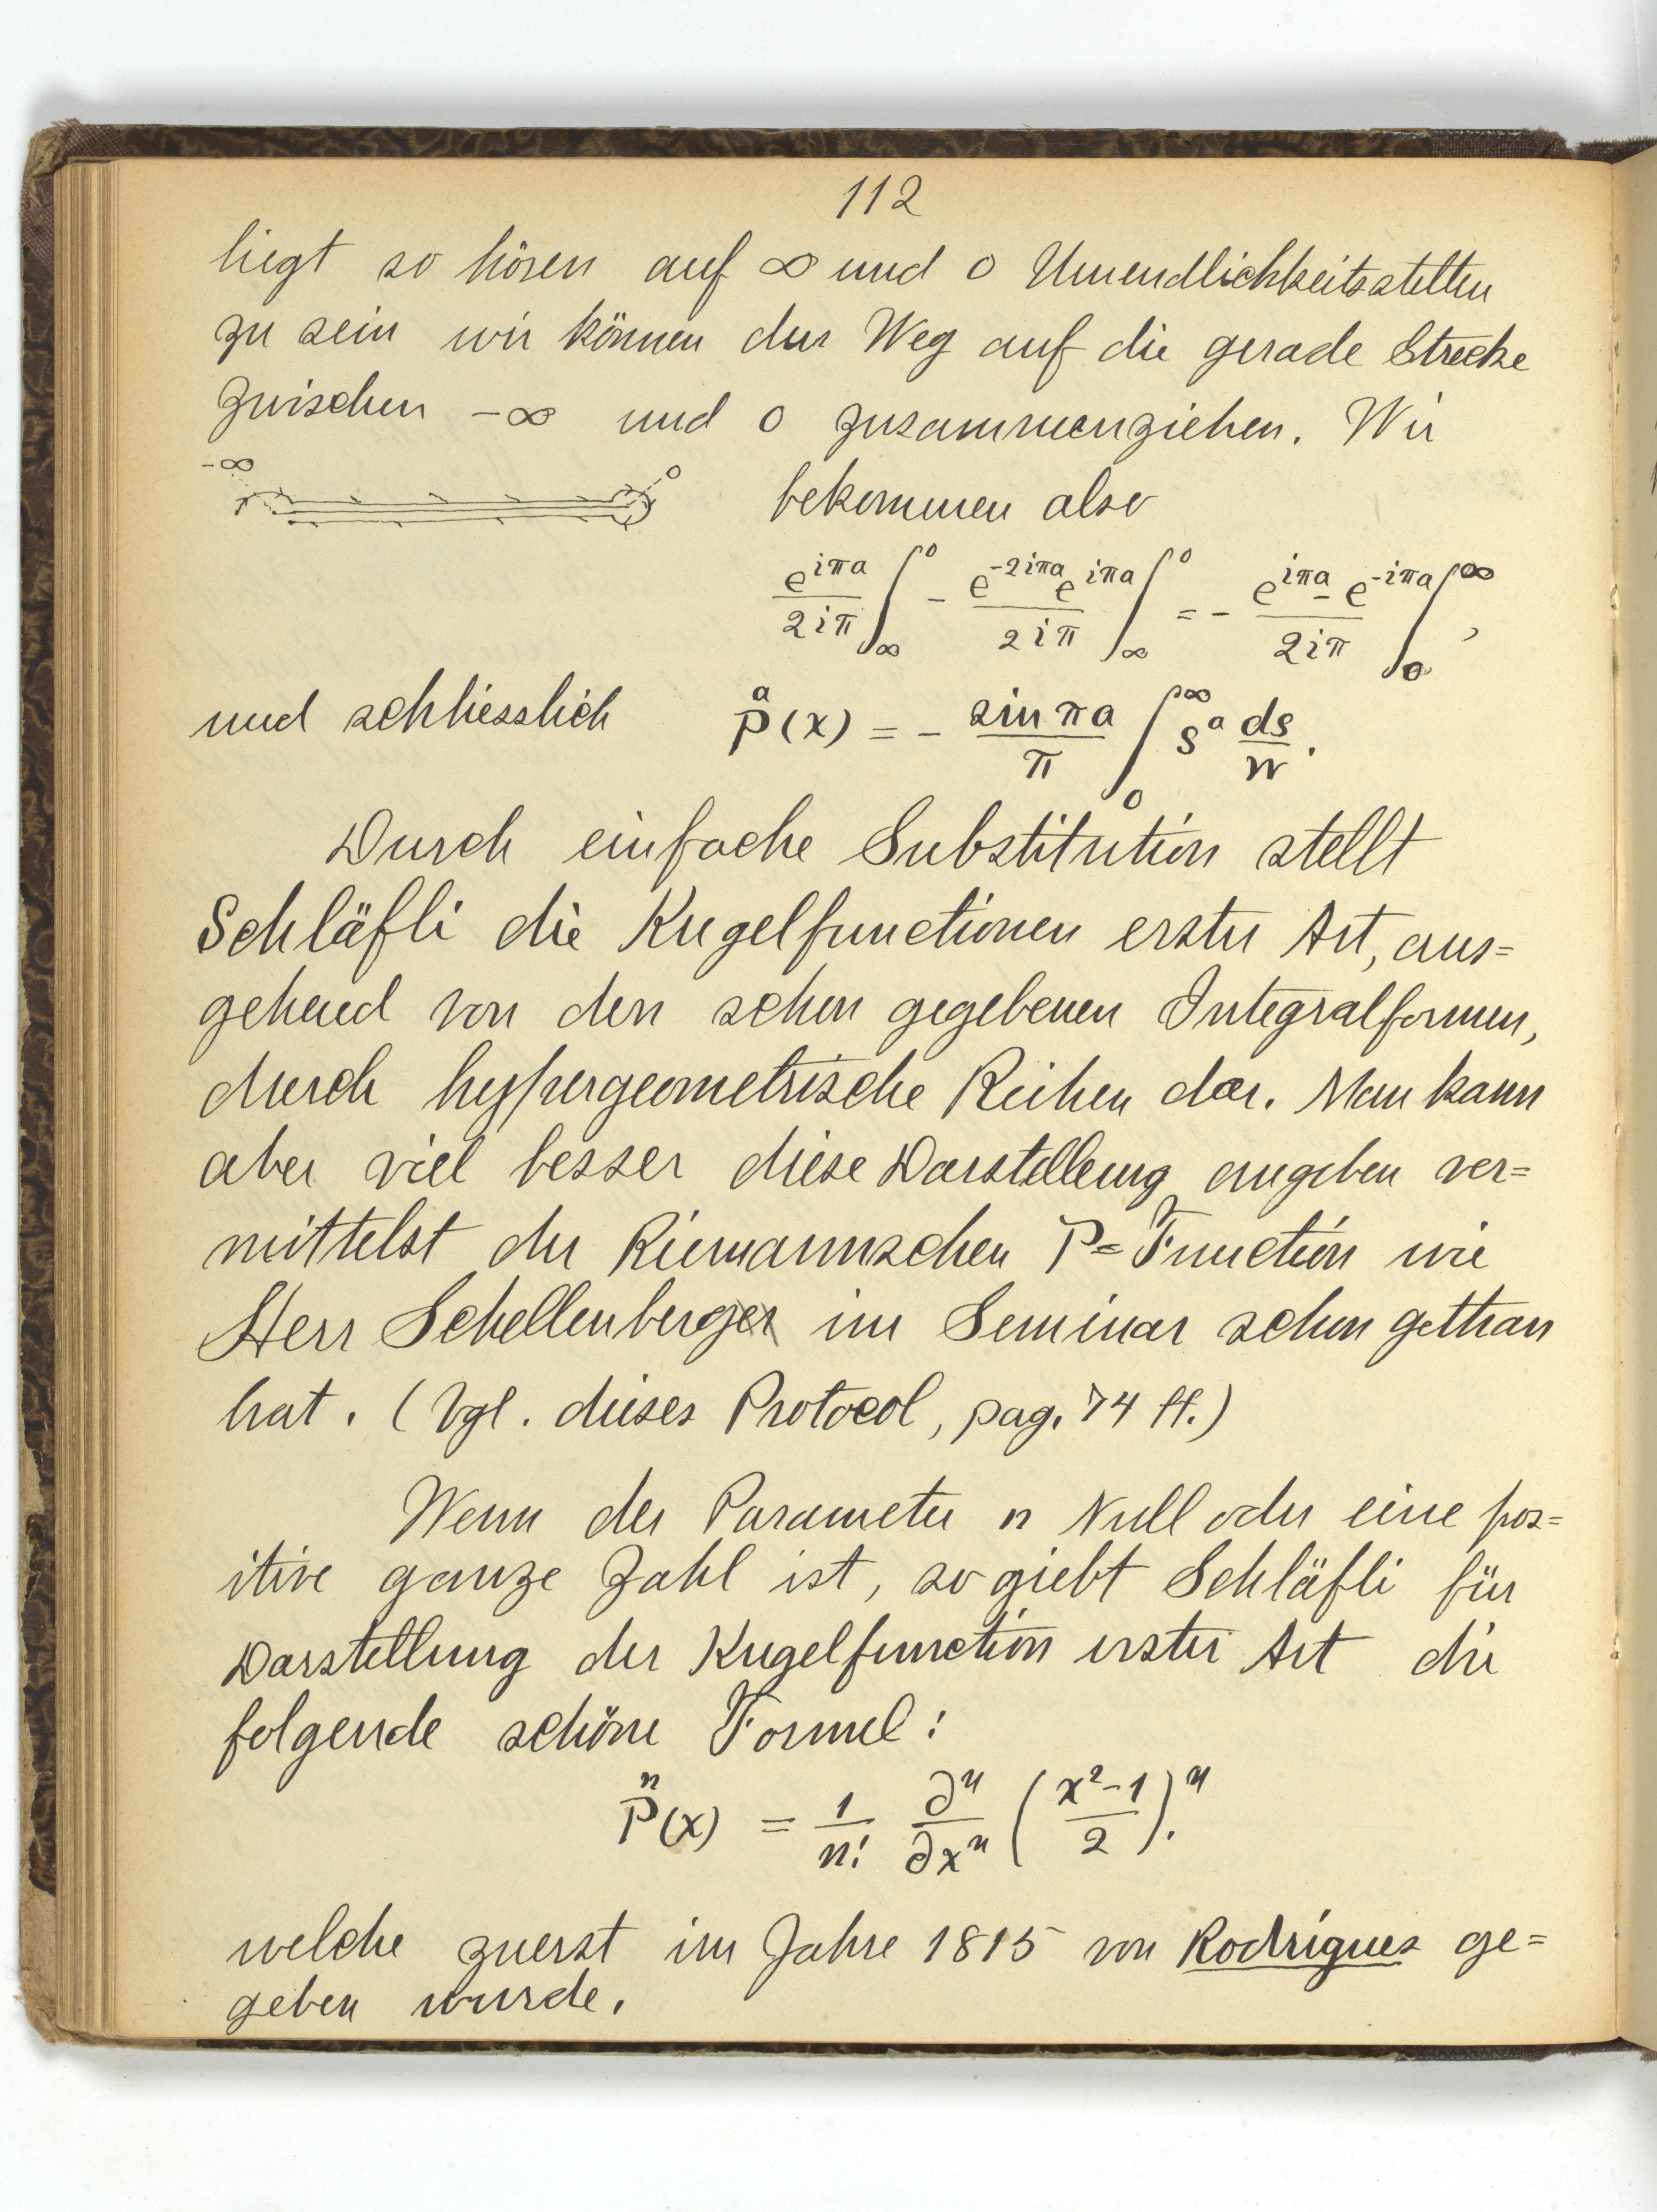 112
liegt so hören auf ∞ und 0 Unendlichkeitsstellen
zu sein wir können der Weg auf die gerade Strecke
zwischen -∞ und 0 zusammenziehen. Wir
-∞ 0 bekommen also
\frac{e^{iπa}}{2iπ} \int_∞^0 - \frac{e^{-2iπa} e^{iπa}}{2iπ} \int_∞^0 = - \frac{e^{iπa} - e^{-iπa}}{2iπ} \int_0^∞ ,
und schliesslich \overset{a}{P}(x) = - \frac{sin πa}{π} \int_0^∞ s^a \frac{ds}{w}.
Durch einfache Substitution stellt
Schläfli die Kugelfunctionen erster Art, aus=
gehend von den schon gegebenen Integralformen,
durch hypergeometrische Reihen dar. Man kann
aber viel besser diese Darstellung angeben ver=
mittelst der Riemannschen P=Function wie
Herr Schellenberg im Seminar schon gethan
hat. (Vgl. dieses Protocol, pag. 74 ff.)
Wenn der Parameter n Null oder eine pos=
itive ganze Zahl ist, so giebt Schläfli für
Darstellung der Kugelfunction erster Art die
folgende schöne Formel:
\overset{n}{P}(x) = \frac{1}{n!} \frac{∂^n}{∂x^n} (\frac{x^2-1}{2})^n.
welche zuerst im Jahre 1815 von Rodrigues ge=
geben wurde.